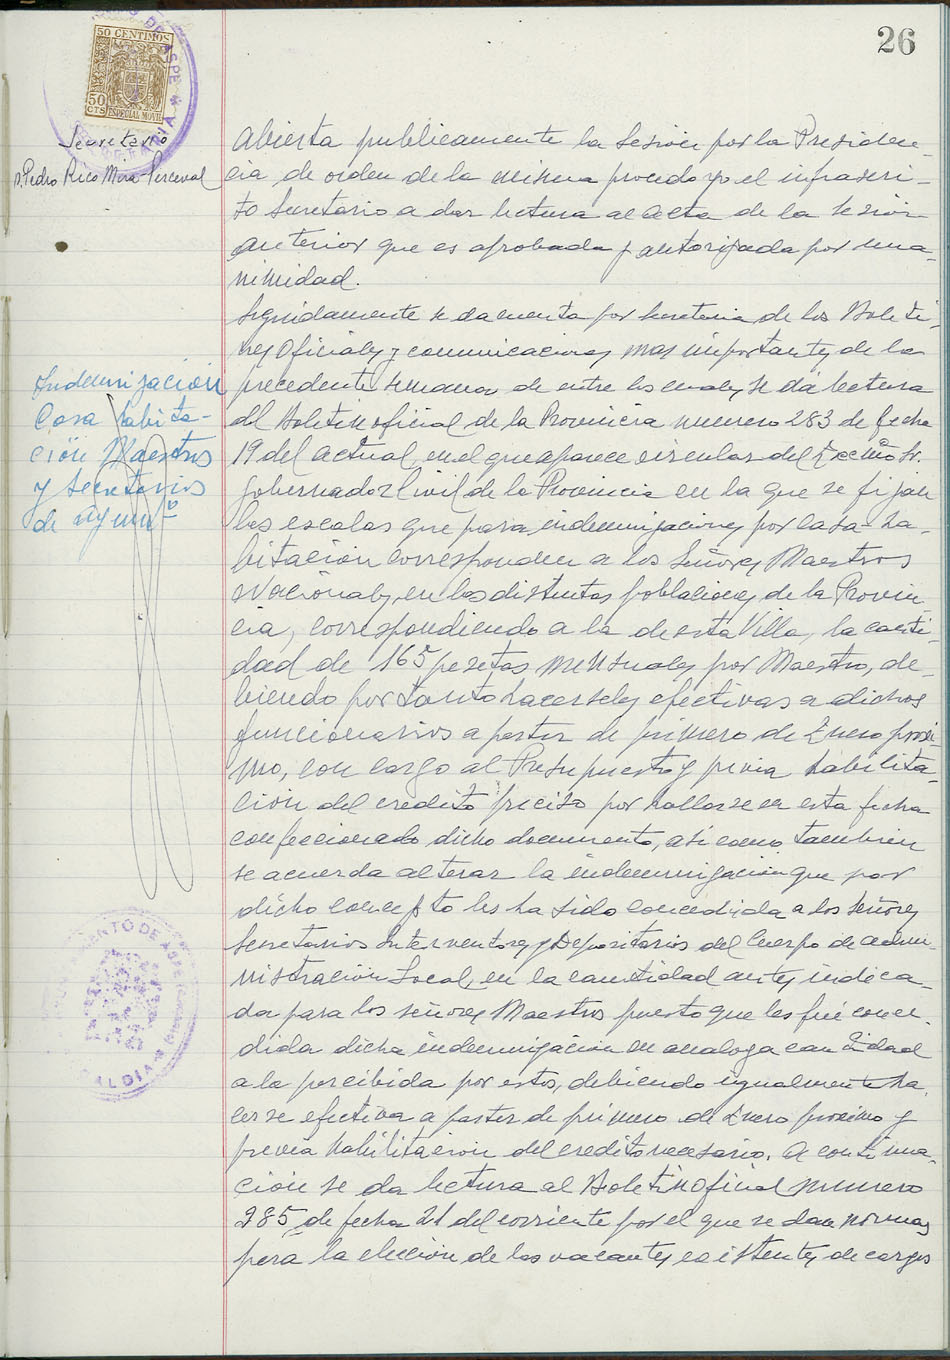 26
50 CENTIMOS
50
CTS
ESPECIAL MOVIL
Secretario
D. Pedro Rico Mora Perceval
Abierta publicamente la Sesión por la Presiden-
cia de orden de la misma procedo yo el infrascri-
to Secretario a dar lectura al acta de la sesión
anterior que es aprobada y autorizada por una-
nimidad.
Seguidamente se da cuenta por Secretaria de los Boleti-
nes Oficiales y comunicaciones mas importantes de la
precedente semana de entre los cuales se dá lectura
del Boletin oficial de la Provincia numero 283 de fecha
19 del actual, en el que aparece circular del Excmo Sr.
Gobernador Civil de la Provincia en la que se fijan
las escalas que para indemnizaciones por casa-ha-
bitación corresponden a los Señores Maestros
Nacionales, en las distintas poblaciones de la Provin-
cia, correspondiendo a la de esta Villa, la canti-
dad de 165 pesetas mensuales por Maestro, de-
biendo por tanto hacerseles efectivas a dichos
funcionarios a partir de primero de Enero proxi-
mo, con cargo al Presupuesto y previa habilita-
ción del credito preciso por hallarse en esta fecha
confeccionado dicho documento, asi como tambien
se acuerda alterar la indemnización que por
dicho concepto les ha sido concedida a los Señores
Secretarios Interventores y Depositarios del Cuerpo de admi-
nistración Local, en la cantidad antes indica-
da para los señores Maestros puesto que les fué conce-
dida dicha indemnización en analoga cantidad
a la percibida por estos, debiendo igualmente ha-
cerse efectiva a partir de primero de Enero proximo y
previa habilitación del credito necesario. A continua-
ción se da lectura al Boletin Oficial numero
285 de fecha 21 del corriente por el que se dan normas
para la elección de las vacantes existentes de cargos
Indemnización
Casa habita-
ción Maestros
y Secretarios
de Aymtº
AYUNTAMIENTO DE ASPE (Alicante)
ALCALDIA